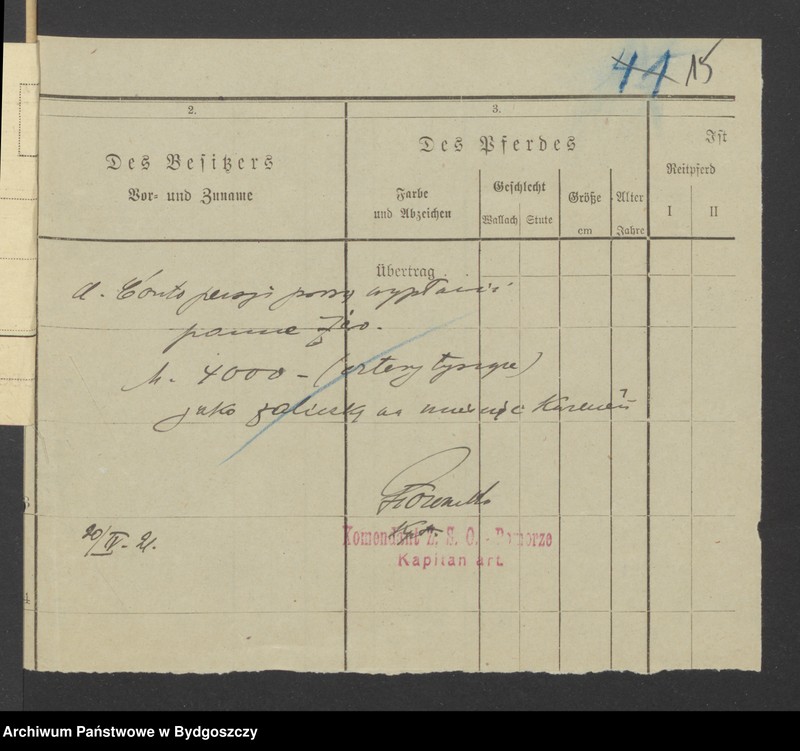 41 15
2.
3.
Des Besitzers
Vor- und Zuname
Des Pferdes
Farbe
und Abzeichen
Geschlecht
Wallach Stute
Größe
cm
Alter
Jahre
Ist
Reitpferd
I II
Übertrag . .
a. Conto proszę wypłacić
M. 4000 - (cztery tysiące)
jako zaliczkę na miesiąc
20/IV - 21.
Komendant Z. S. O. - Pomorze
Kapitan art.
3
4
Archiwum Państwowe w Bydgoszczy